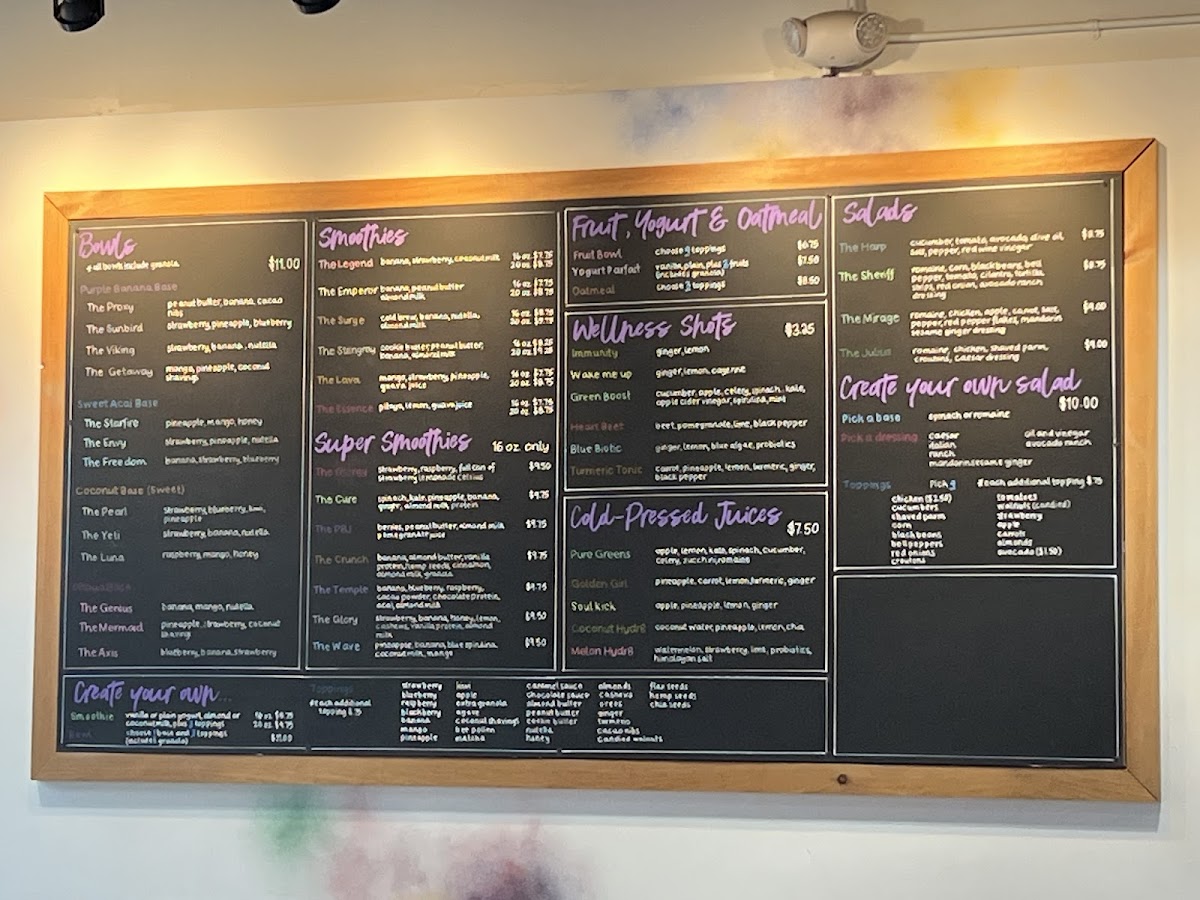 Bowls
* all bowls include granola $11.00
Purple Banana Base
The Proxy peanut butter, banana, cacao
nibs
The Sunbird strawberry, pineapple, blueberry
The Viking strawberry, banana, nutella
The Getaway mango, pineapple, coconut
shavings
Sweet Acai Base
The Starfire pineapple, mango, honey
The Envy strawberry, pineapple, nutella
The Freedom banana, strawberry, blueberry
Coconut Base (Sweet)
The Pearl strawberry, blueberry, kiwi,
pineapple
The Yeti strawberry, banana, nutella
The Luna raspberry, mango, honey
The Genius banana, mango, nutella
The Mermaid pineapple, strawberry, coconut
shaving
The Axis blueberry, banana, strawberry
Smoothies
The Legend banana, strawberry, coconut milk 16 oz. $7.75
20 oz. $8.75
The Emperor banana, peanut butter 16 oz. $7.75
almond milk 20 oz. $8.75
The Surge cold brew, banana, nutella,
almond milk
The Stingray cookie butter, peanut butter, 16 oz $8.25
banana, almond milk 20 oz $9.25
The Lava mango, strawberry, pineapple, 16 oz $7.75
guava juice 20 oz $8.75
The Essence pitaya, lemon, guava juice 16 oz. $7.75
20 oz. $8.75
Super Smoothies 16 oz only
strawberry, raspberry, full can of $9.50
strawberry lemonade celsius
The Cure spinach, kale, pineapple, banana, $9.75
ginger, almond milk, protein
The PB&J berries, peanut butter, almond milk $9.75
pomegranate juice
The Crunch banana, almond butter, vanilla $9.75
protein, hemp seeds, cinnamon,
almond milk, granola
The Temple banana, blueberry, raspberry, $9.75
cacao powder, chocolate protein,
acai, almond milk
The Glory strawberry, banana, honey, lemon, $9.50
cashews, vanilla protein, almond
milk
The Wave pineapple, banana, blue spirulina, $9.50
coconut milk, mango
Fruit, Yogurt & Oatmeal
Fruit Bowl choose 3 toppings $6.75
Yogurt Parfait vanilla, plain, plus 2 fruits $7.50
(includes granola)
Oatmeal choose 3 toppings $8.50
Wellness Shots $3.25
Immunity ginger, lemon
Wake me up ginger, lemon, cayenne
Green Boost cucumber, apple, celery, spinach, kale,
apple cider vinegar, spirulina, mint
Heart Beet beet, pomegranate, lime, black pepper
Blue Biotic ginger, lemon, blue algae, probiotics
Turmeric Tonic carrot, pineapple, lemon, turmeric, ginger,
black pepper
Cold-Pressed Juices $7.50
Pure Greens apple, lemon, kale, spinach, cucumber,
celery, zucchini, romaine
Golden Girl pineapple, carrot, lemon, turmeric, ginger
Soul kick apple, pineapple, lemon, ginger
Coconut Hydr8 coconut water, pineapple, lemon, chia
Melon Hydr8 watermelon, strawberry, lime, probiotics,
himalayan salt
Salads
The Harp cucumber, tomato, avocado, olive oil, $8.75
salt, pepper, red wine vinegar
The Sheriff romaine, corn, black beans, bell $8.75
pepper, tomato, cilantro, tortilla
strips, red onion, avocado ranch
dressing
The Mirage romaine, chicken, apple, carrot, salt, $9.00
pepper, red pepper flakes, mandarin
sesame ginger dressing
The Julius romaine, chicken, shaved parm, $9.00
croutons, caesar dressing
Create your own salad
$10.00
Pick a base spinach or romaine
Pick a dressing caesar oil and vinegar
italian avocado ranch
ranch
mandarin sesame ginger
Toppings Pick 3 #each additional topping $.75
chicken ($2.50) tomatoes
cucumbers walnuts (candied)
shaved parm strawberry
corn apple
black beans carrots
bell peppers almonds
red onions avocado ($1.50)
croutons
Create your own...
Smoothie vanilla or plain yogurt, almond or 16 oz $8.75
coconut milk, plus 3 toppings 20 oz. $9.75
Bowl choose 1 base and 3 toppings $11.00
(includes granola)
Toppings
#each additional
topping $.75
strawberry kiwi caramel sauce almonds flax seeds
blueberry apple chocolate sauce cashews hemp seeds
raspberry extra granola almond butter chia seeds
blackberry agave peanut butter ginger
banana coconut shavings cookie butter turmeric
mango bee pollen nutella cacao nibs
pineapple matcha honey candied walnuts